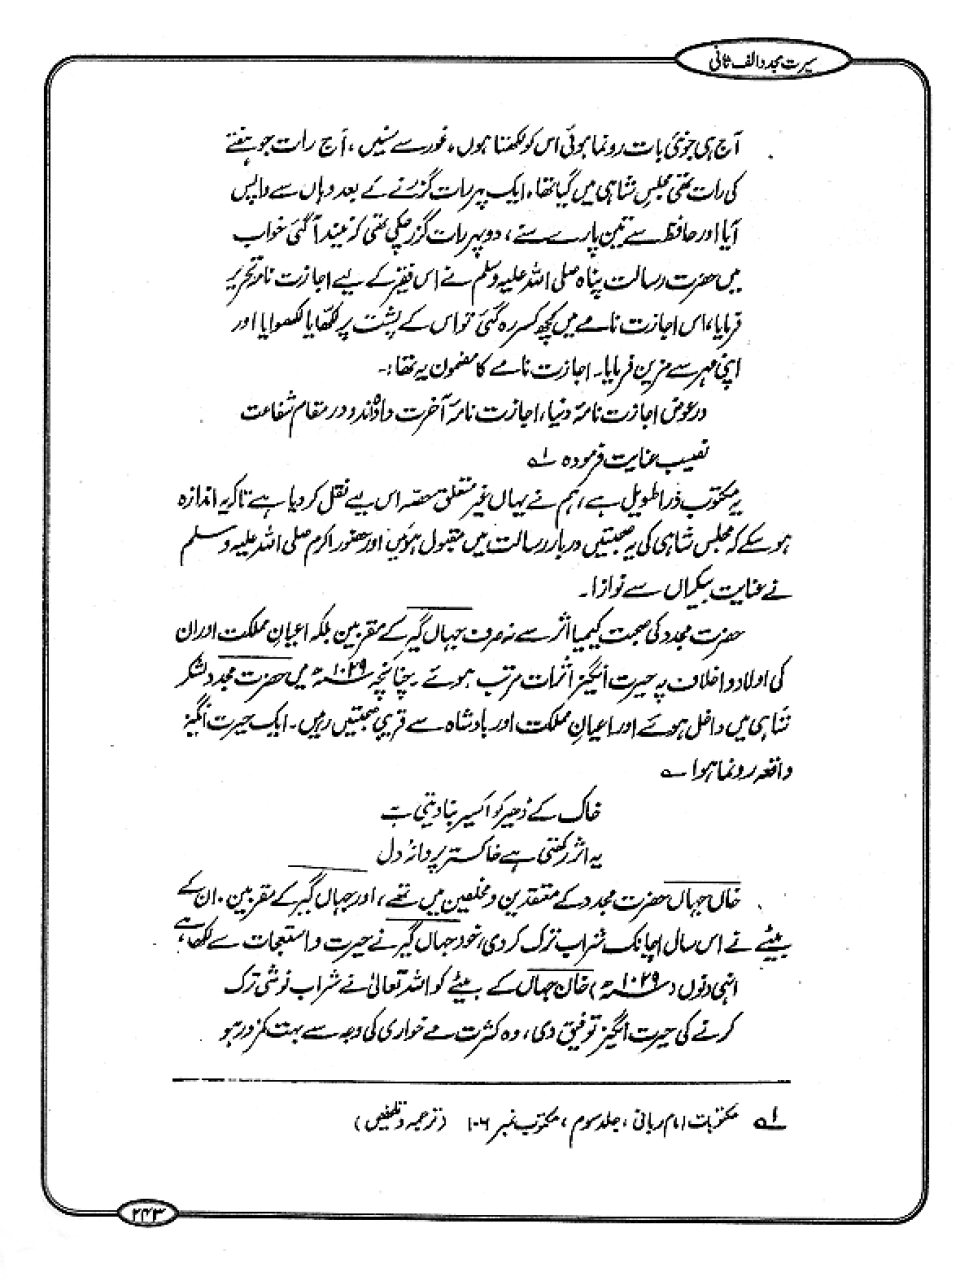 سیرت مجدد الف ثانی
آج ہی جونئی بات رونما ہوئی اس کو لکھتا ہوں، غور سے سنیں، آج رات جو ہفتے
کی رات تھی مجلس شاہی میں گیا تھا، ایک پہر رات گزرنے کے بعد وہاں سے واپس
آیا اور حافظ سے تین پارے سنے، دوپہر رات گزر چکی تھی کہ نیند آگئی خواب
میں حضرت رسالت پناہ صلی اللہ علیہ وسلم نے اس فقیر کے لیے اجازت نامہ تحریر
فرمایا، اس اجازت نامے میں کچھ کسر رہ گئی تو اس کے پشت پر لکھا یا لکھوایا اور
اپنی مہر سے مزین فرمایا۔ اجازت نامے کا مضمون یہ تھا:۔
درعوض اجازت نامۂ دنیا، اجازت نامۂ آخرت دادہ اند و در مقام شفاعت
نصیب عنایت فرمودہ ۱؎
یہ مکتوب ذرا طویل ہے، ہم نے یہاں غیر متعلق حصہ اس لیے نقل کر دیا ہے تاکہ یہ اندازہ
ہو سکے کہ مجلس شاہی کی یہ صحبتیں دربار رسالت میں مقبول ہوئیں اور حضور اکرم صلی اللہ علیہ وسلم
نے عنایت بیکراں سے نوازا۔
حضرت مجدد کی صحبت کیمیا اثر سے نہ صرف جہاں گیر کے مقربین بلکہ اعیان مملکت اور ان
کی اولاد و اخلاف پہ حیرت انگیز اثرات مرتب ہوئے۔ چنانچہ ۱۰۲۹ھ میں حضرت مجدد لشکر
شاہی میں داخل ہوئے اور اعیان مملکت اور بادشاہ سے قریبی صحبتیں رہیں۔ ایک حیرت انگیز
واقعہ رونما ہوا ؎
خاک کے ڈھیر کو اکسیر بنا دیتی ہے
یہ اثر رکھتی ہے خاکستر پروانۂ دل
خان جہاں حضرت مجدد کے معتقدین و مخلصین میں تھے، اور جہاں گیر کے مقربین۔ ان کے
بیٹے نے اس سال اچانک شراب ترک کردی، خود جہاں گیر نے حیرت و استعجاب سے لکھا ہے
انہی دنوں (۱۰۲۹ھ) خان جہاں کے بیٹے کو اللہ تعالیٰ نے شراب نوشی ترک
کرنے کی حیرت انگیز توفیق دی، وہ کثرت مے خواری کی وجہ سے بہت کمزور ہو
۱؎ مکتوبات امام ربانی، جلد سوم، مکتوب نمبر ۱۰۶ (ترجمہ و تلخیص)
۲۴۳